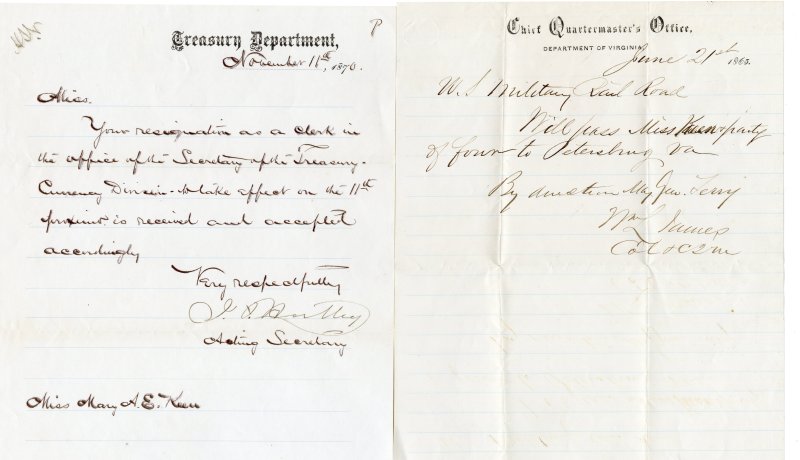 P
Treasury Department,
November 11th, 1870.
Miss.
Your resignation as a clerk in
the office of the Secretary of the Treasury-
Currency Division - to take effect on the 11th
proximo is received and accepted
accordingly
Very respectfully
Acting Secretary
Miss Mary A. E. Keen
Chief Quartermaster's Office,
DEPARTMENT OF VIRGINIA,
June 21st 1865.
U.S Military Rail Road
Will pass Miss Keen & party
of four to Petersburg Va
By direction Maj Gen. Terry
Wm L James
Col & C Q M